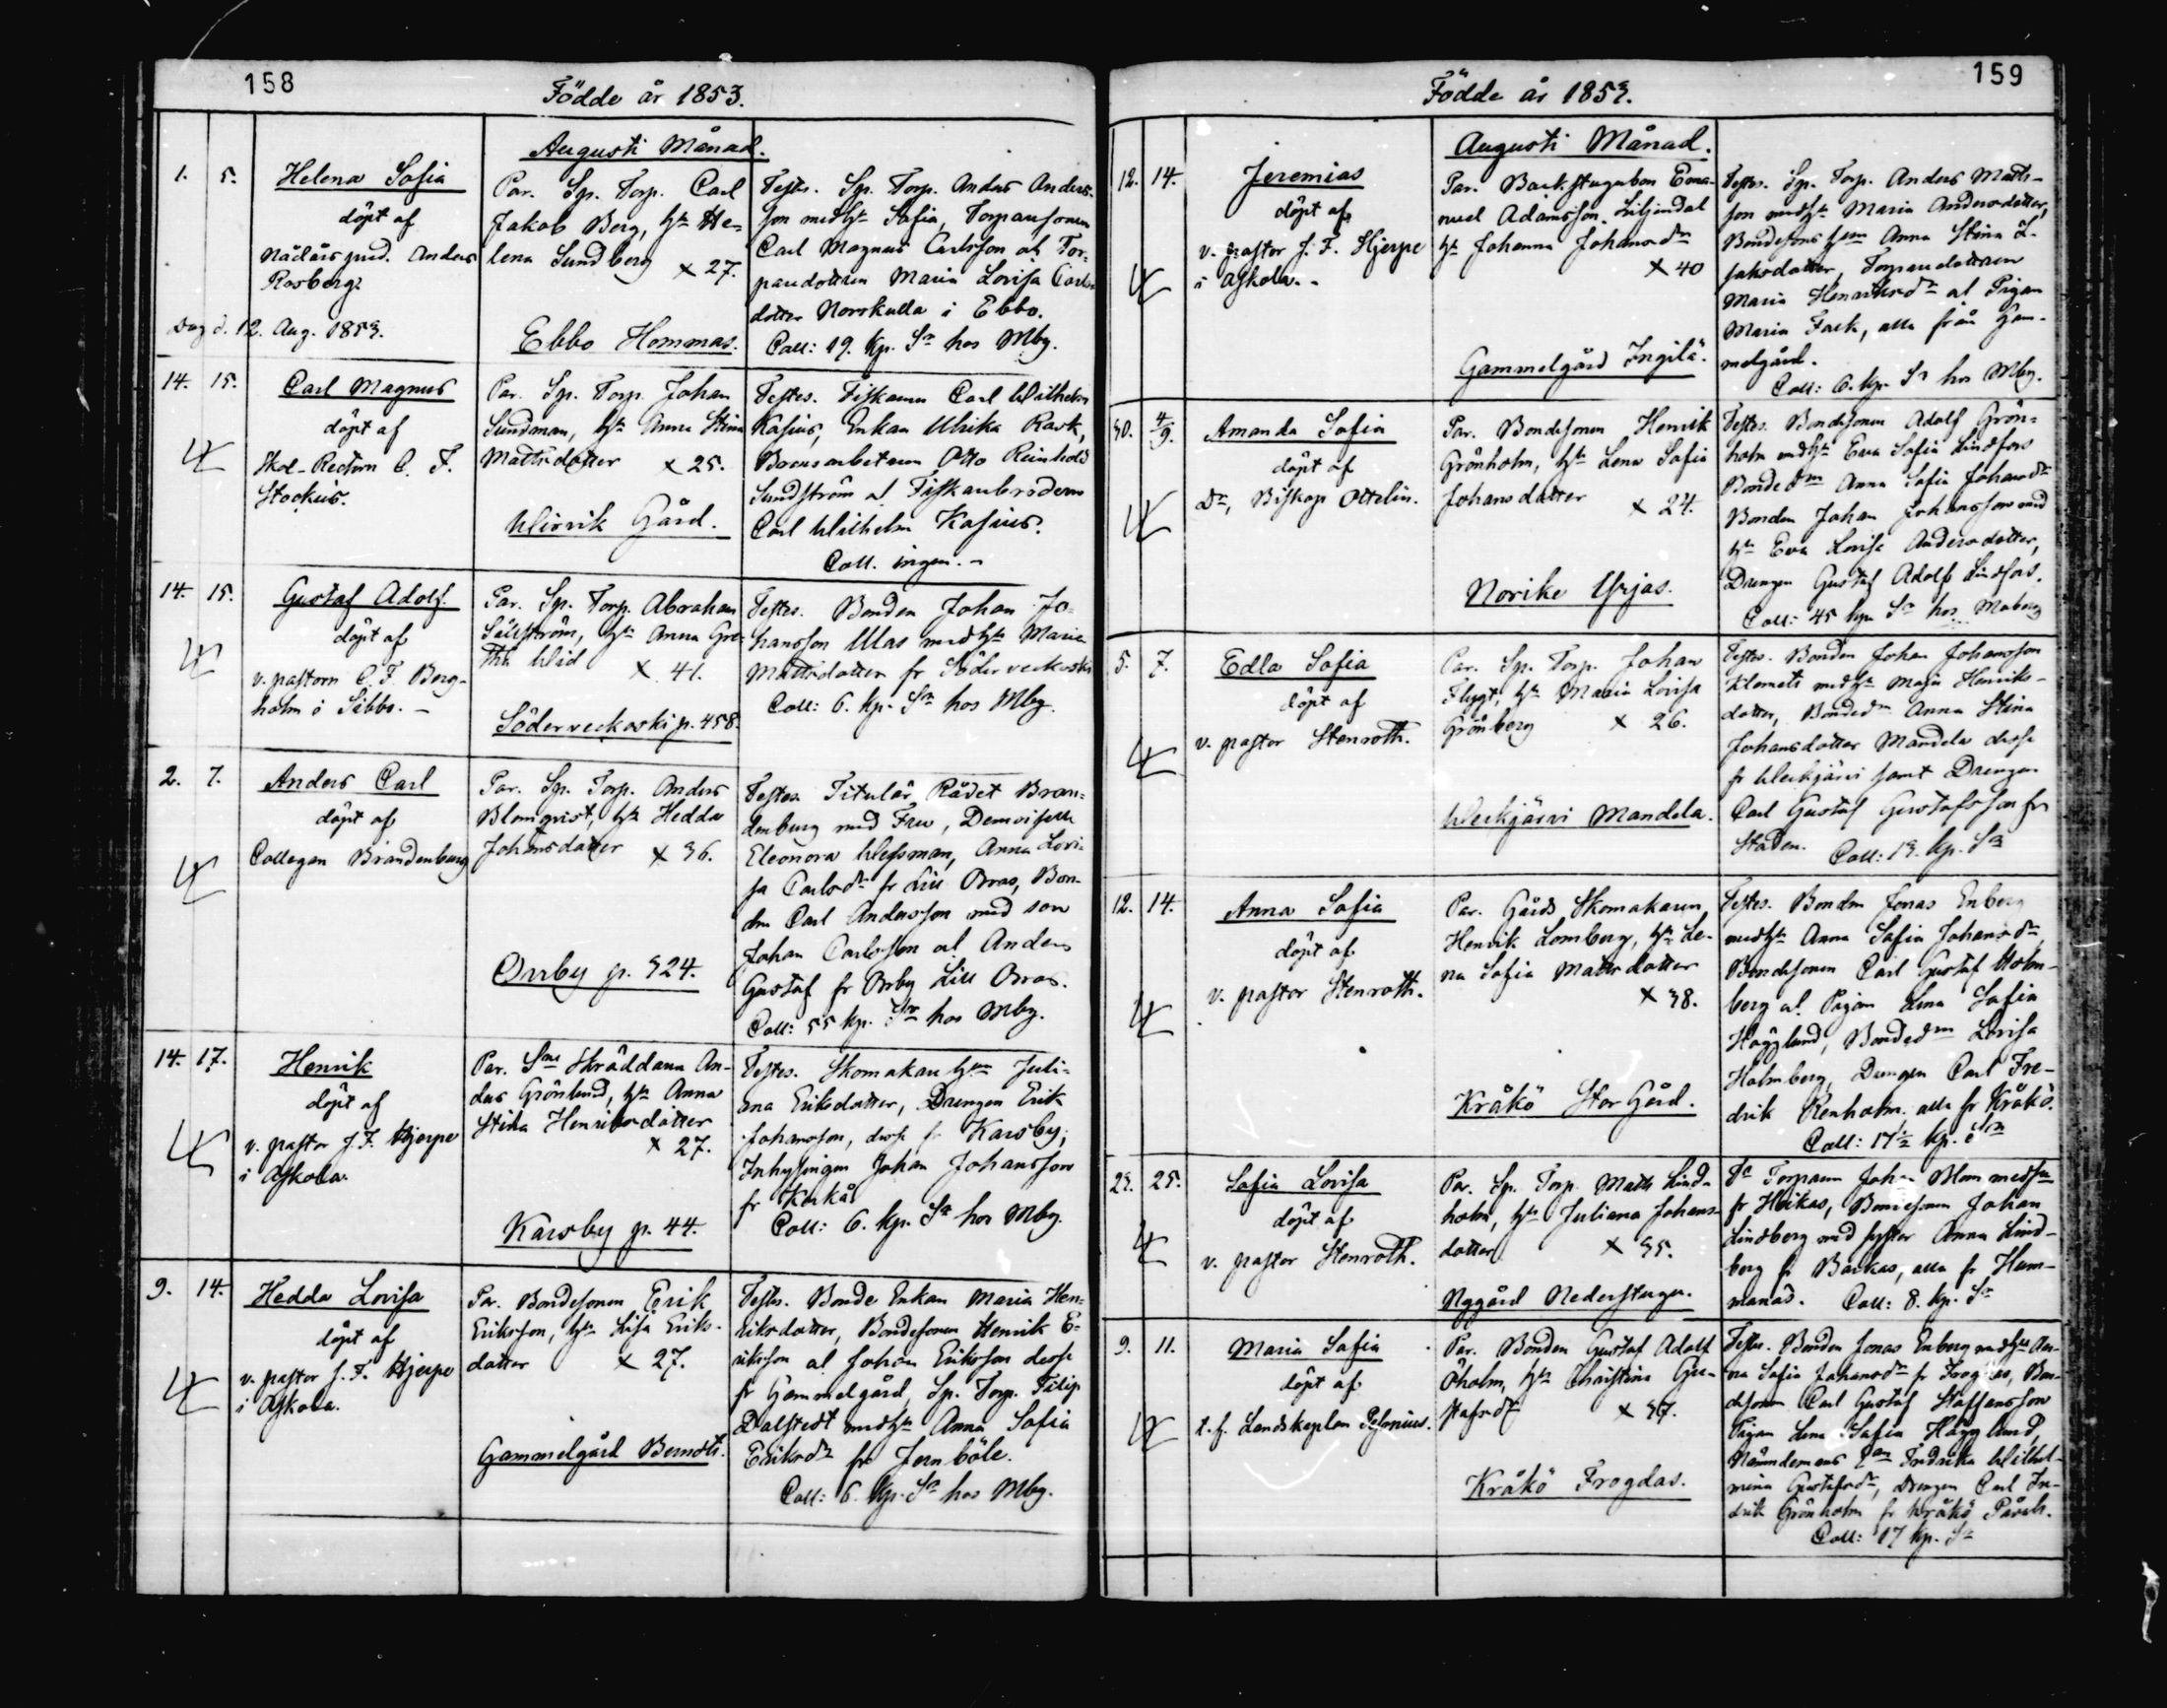 158
Födde år 1853.
Augusti Månad.
1. 5. Helena Sofia
döpt af
Nådårspred. Anders
Rosberg
Död d. 12. Aug. 1853.
Par. Sp. Torp. Carl
Jakob Berg, hu He-
lena Sundberg × 27.
Ebbo Hommas.
Testes. Sp. Torp. Anders Anders-
son med hu Sofia, Torparsonen
Carl Magnus Carlsson och Tor-
paredottren Maria Lovisa Carls-
dotter Norrkulla i Ebbo.
Coll: 19. kp. Sr hos Mbg.
14. 15. Carl Magnus
döpt af
Skol-Rectorn C. F.
Stookus.
Par. Sp. Torp. Johan
Sundman, hu Anna Stina
Mattsdotter × 25.
Gård.
Testes. Fiskaren Carl Wilhelm
Kasius, Enkan Ulrika Rask,
Otto Reinhold
Sundström al.
Carl Wilhelm Kasius.
Coll. ingen.
14. 15. Gustaf Adolf
döpt af
v. pastorn C. F. Berg-
holm i Sibbo.
Par. Sp. Torp. Abraham
Sälström, hu Anna Gre-
tha Wid × 41.
Söderveckoski p. 458.
Testes. Bonden Johan Jo-
hansson Ulas med hu Maria
Mattsdotter fr Söderveckoski
Coll: 6. kp. Sr hos Mbg.
2. 7. Anders Carl
döpt af
Collegan Brandenburg
Par. Sp. Torp. Anders
Blomqvist, hu Hedda
Johansdotter × 36.
Orrby p. 324.
Testes. Titulär Rådet Bran-
denburg med Fru, Demoiselle
Eleonora Wessman, Anna Lovi-
sa Carlsdr fr Lill Orras, Bon-
den Carl Andersson med son
Johan Carlsson al. Anders
Gustaf fr Orrby Lill Orras.
Coll: 55 kp. Sr hos Mbg.
14. 17. Henrik
döpt af
v. pastor J. F. Hjerpe
i Askola.
Par. Sne Skräddaren An-
ders Grönlund, hu Anna
Stina Henriksdotter
× 27.
Karsby p. 44.
Testes. Skomakare hun Juli-
ana Eriksdotter, Drengen Erik
Johansson, desse fr Karsby,
Inhysingen Johan Johansson
fr
Coll: 6. kp. Sr hos Mbg.
9. 14. Hedda Lovisa
döpt af
v. pastor J. F. Hjerpe
i Askola.
Par. Bondesonen Erik
Eriksson, hu Lisa Eriks-
dotter × 27.
Gammelgård Berndts.
Testes. Bonde Enkan Maria Hen-
riksdotter, Bondesonen Henrik E-
riksson al Johan Eriksson desse
fr Gammelgård, Sp. Torp. Filip
Dalstedt med hu Anna Sofia
Eriksdr fr Jernböle.
Coll: 6. kp. Sr hos Mbg.
159
Födde år 1853.
Augusti Månad.
12. 14. Jeremias
döpt af
v. pastor J. F. Hjerpe
i Askola.
Par. Backstugubon Ema-
nuel Adamsson Liljendal
hu Johanna Johansdr
× 40
Gammelgård Ingilä.
Testes. Sp. Torp. Anders Matts-
son med hu Maria Andersdotter,
Bondesons hun Anna Stina I-
saksdotter, Torparedottren
Maria Henriksdr al Pigan
Maria Fack, alla från Gam-
melgård.
Coll: 6. kp. Sr hos Mbg.
30. 4/9. Amanda Sofia
döpt af
Dr, Biskop Ottelin.
Par. Bondesonen Henrik
Grönholm, hu Lena Sofia
Johansdotter × 24.
Norike Yrjas.
Testes. Bondesonen Adolf Grön-
holm med hu Eva Sofia Lindfors
Bondedm Anna Sofia Johansdr
Bonden Johan Johansson med
hu Eva Lovisa Andersdotter,
Drengen Gustaf Adolf Lindfors.
Coll: 45 kp Sr hos Moberg
5. 7. Edla Sofia
döpt af
v. pastor Stenroth.
Par. Sp. Torp. Johan
Flygt, hu Maria Lovisa
Grönberg × 26.
Weckjärvi Mandela.
Testes. Bonden Johan Johansson
Klemets med hu Maja Henriks-
dotter, Bondedm Anna Stina
Johansdotter Mandela desse
fr Weckjärvi samt Drengen
Carl Gustaf Gustafsson fr
Staden. Coll: 13. kp. Sr
12. 14. Anna Sofia
döpt af
v. pastor Stenroth.
Par. Gårds Skomakaren
Henrik Lomberg, hu Le-
na Sofia Mattsdotter
× 38.
Kråkö Stor Gård.
Testes. Bonden Jonas Enberg
med hu Anna Sofia Johansdr
Bondesonen Carl Gustaf Holm-
berg al. Pigan Lena Sofia
Högglund, Bondedm Lovisa
Holmberg, Drengen Carl Fre-
drik Renholm, alla fr Kråkö.
Coll: 17½ kp. Sr
23. 25. Sofia Lovisa
döpt af
v. pastor Stenroth.
Par. Sp. Torp. Matts Lind-
holm, hu Juliana Johans-
dotter × 35.
Nygård Nederstugu.
Ts Torparen Johan Blom med hu
fr Heikas, Bondesonen Johan
Lindberg med syster Anna Lind-
berg fr Backas, alla fr Ham-
manäs. Coll: 8. kp. Sr
9. 11. Maria Sofia
döpt af
t.f. Landskaplan Pelonius.
Par. Bonden Gustaf Adolf
Öholm, hu Christina Gu-
stafsdr × 37.
Kråkö Frogdas.
Testes. Bonden Jonas Enberg med hu An-
na Sofia Johansdr fr Frogdas, Bon-
desonen Carl Gustaf Staffansson
Pigan Lena Sofia Högglund,
Nämndemans Fredrika Wilhel-
mina Gustafsdr, Drengen Carl Fre-
drik Grönholm fr Kråkö Påvals.
Coll: 17 kp. Sr